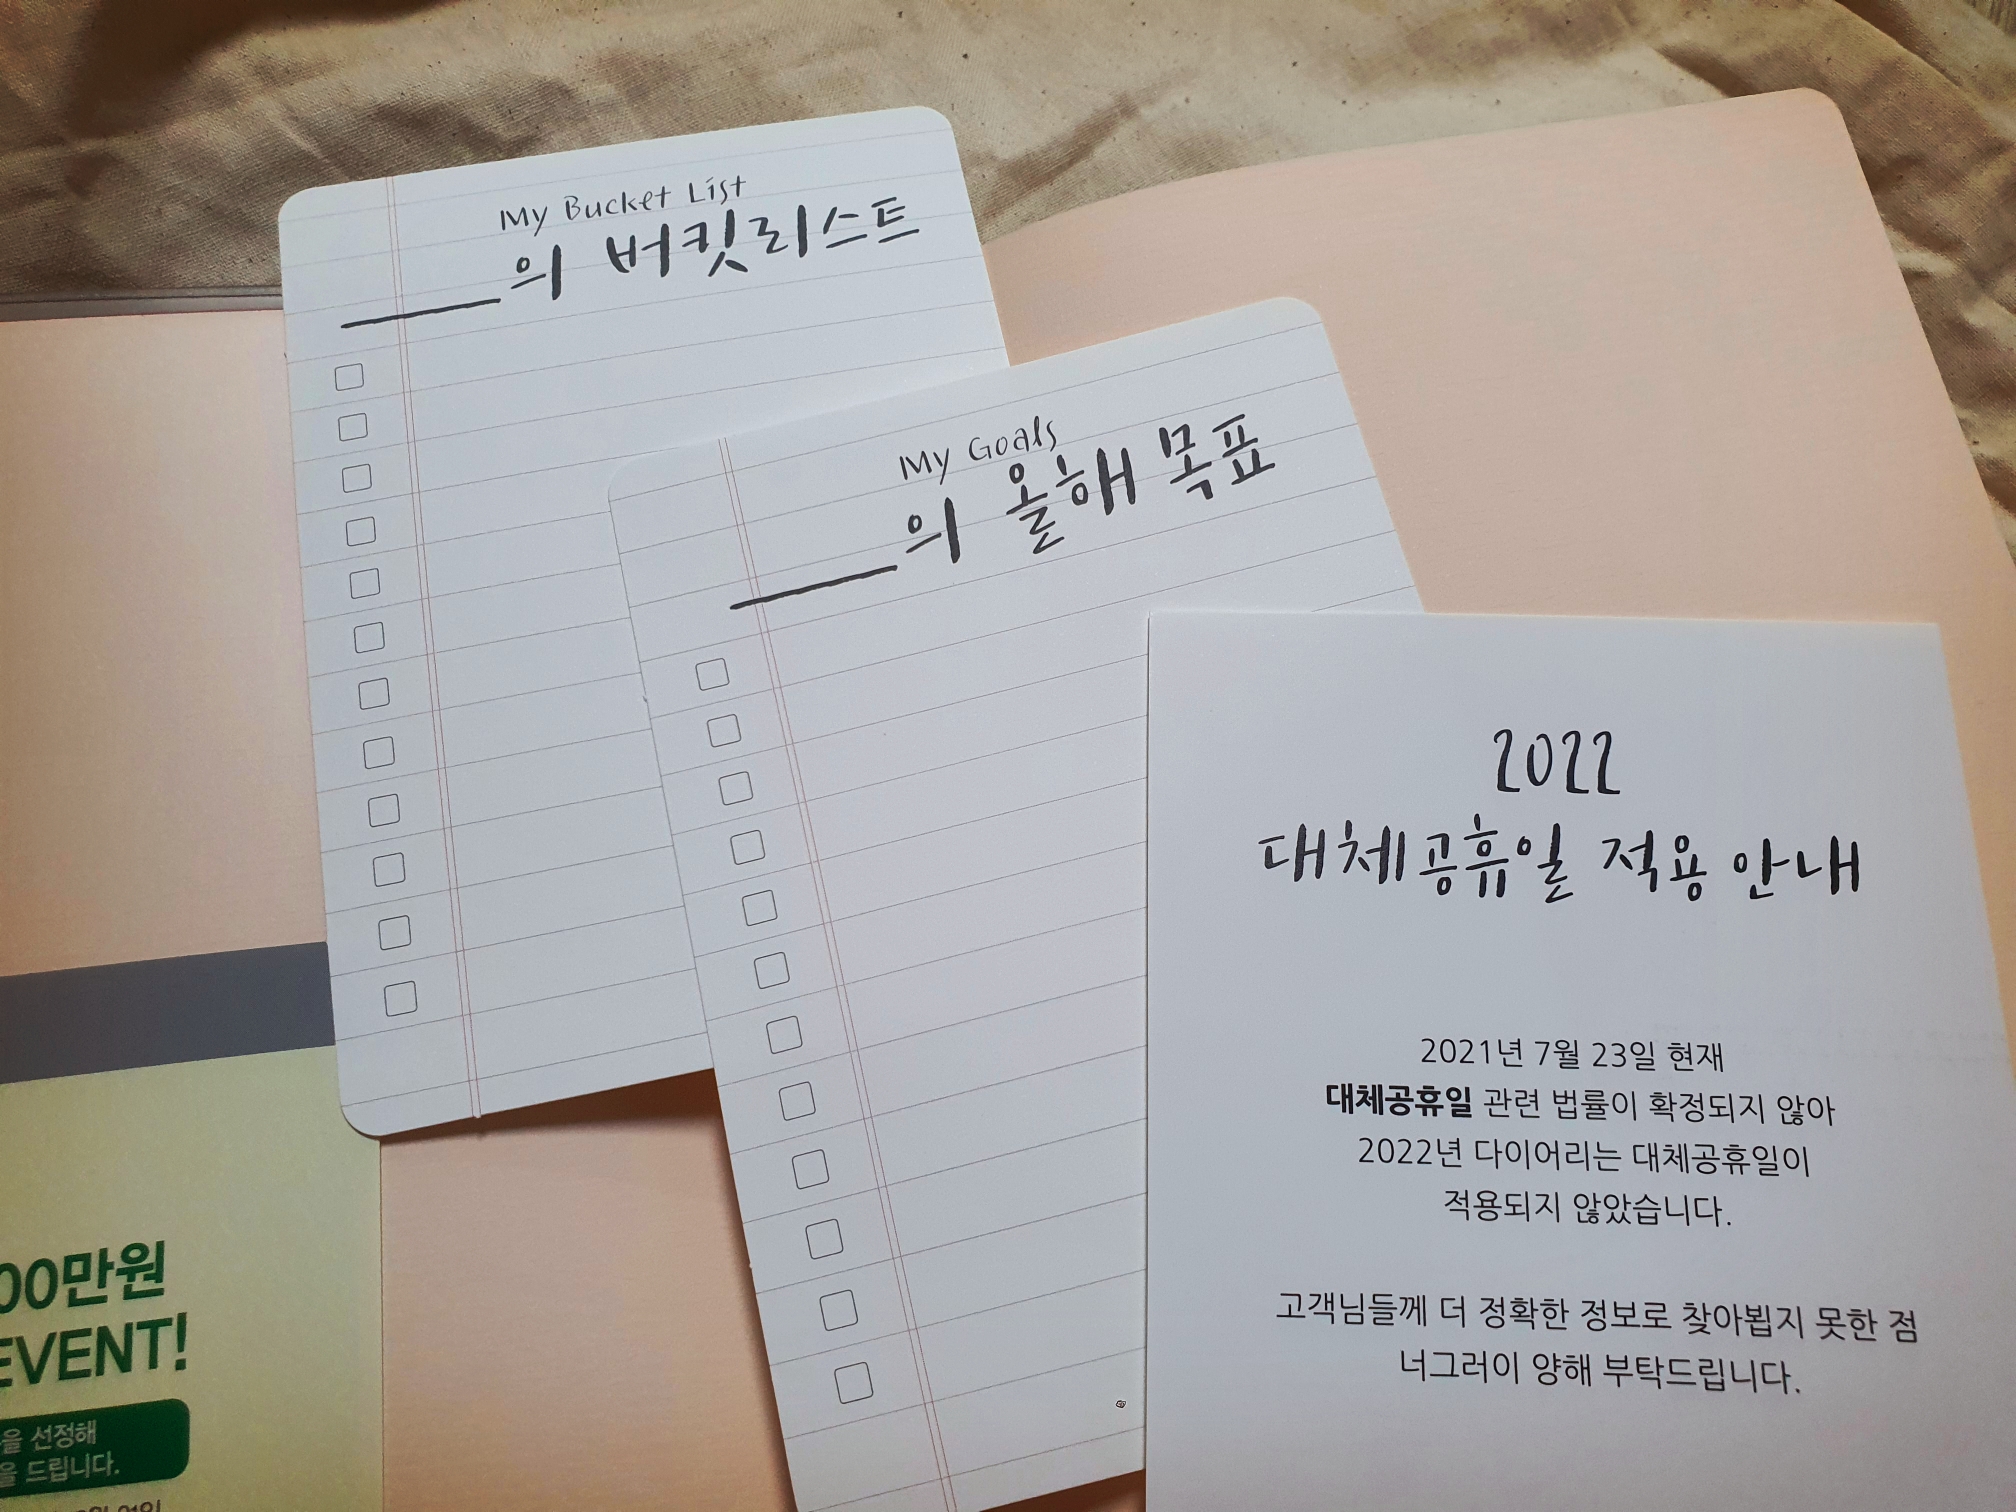 My Bucket List
의 버킷리스트
My Goals
의 올해 목표
2022
대체공휴일 적용 안내
2021년 7월 23일 현재
대체공휴일 관련 법률이 확정되지 않아
2022년 다이어리는 대체공휴일이
적용되지 않았습니다.
고객님들께 더 정확한 정보로 찾아뵙지 못한 점
너그러이 양해 부탁드립니다.
00만원
EVENT!
을 선정해
을 드립니다.